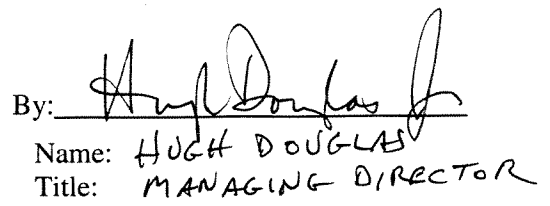 By: Hugh Douglas Jr
Name: HUGH DOUGLAS
Title: MANAGING DIRECTOR